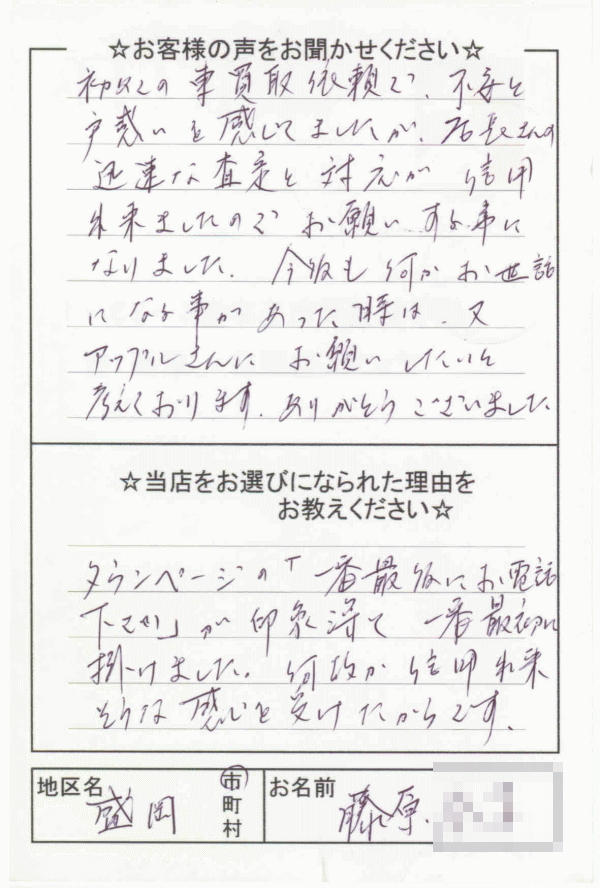 ☆お客様の声をお聞かせください☆
初めての車買取依頼で、不安と
戸惑いを感じてましたが、店長さんの
迅速な査定と対応が信用
出来ましたのでお願いする事に
なりました。今後も何かお世話
になる事があった時は、又
アップルさんにお願いしたいと
考えております。ありがとうございました
☆当店をお選びになられた理由を
お教えください☆
タウンページの「一番最後にお電話
下さい」が印象深くて一番最初に
掛けました。何故か信用出来
そうな感じを受けたからです。
地区名 盛岡 市 町 村 お名前 藤原